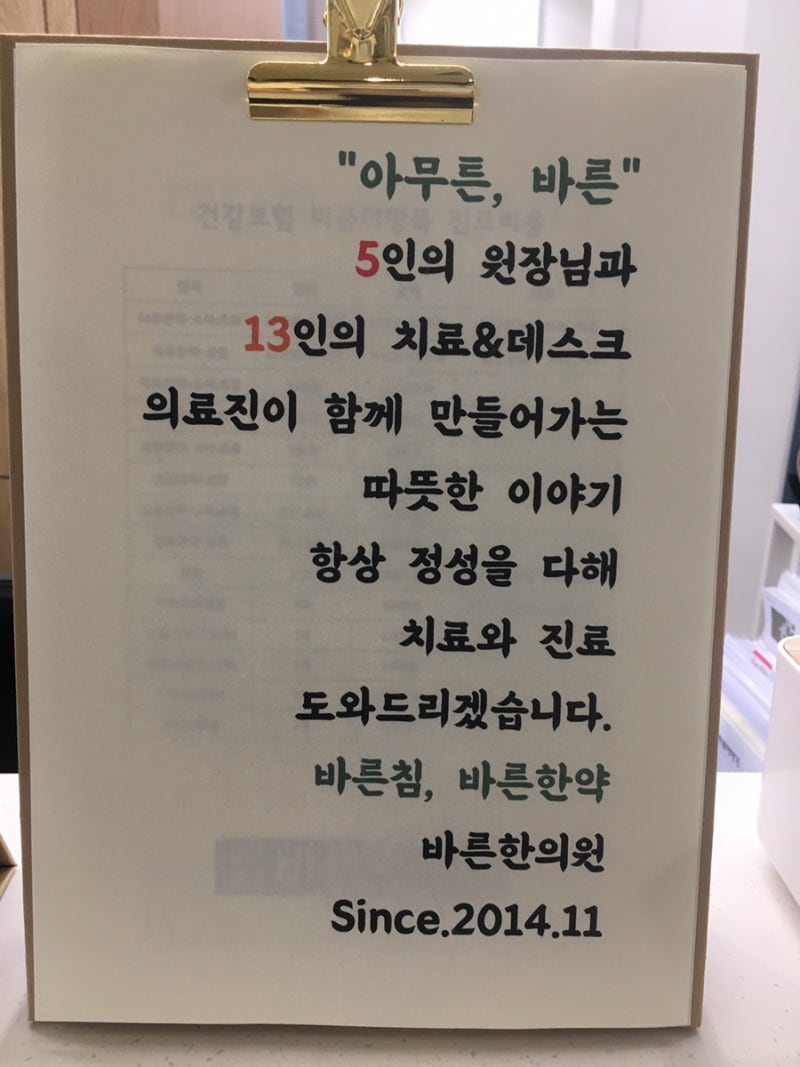 "아무튼, 바른"
5인의 원장님과
13인의 치료&데스크
의료진이 함께 만들어가는
따뜻한 이야기
항상 정성을 다해
치료와 진료
도와드리겠습니다.
바른침, 바른한약
바른한의원
Since.2014.11